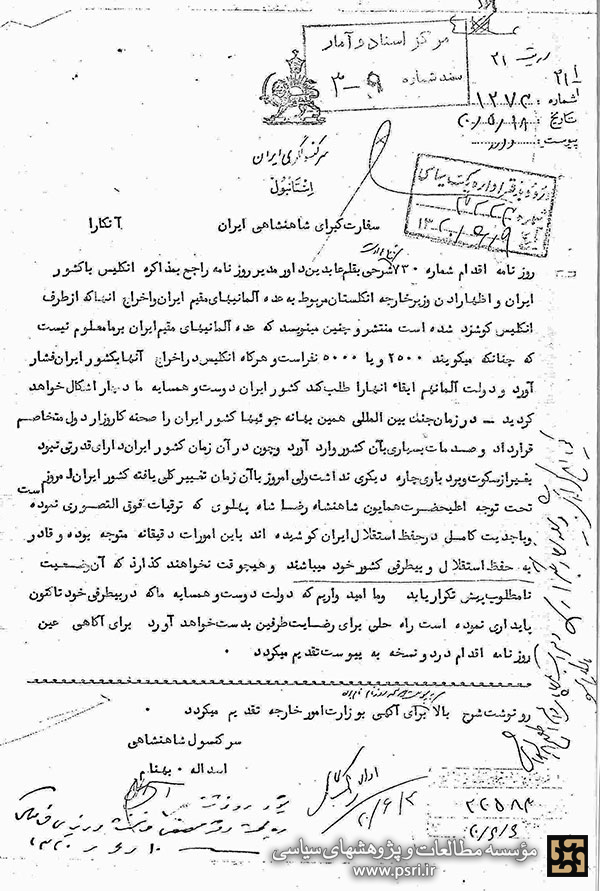 مرکز اسناد و آمار
سند شماره ۹-۳
شماره : ۱۲۷۳
تاریخ : ۲۰/۵/۱۸
پیوست:
سرکنسولگری ایران
اِسْتانبُول
سفارت کبرای شاهنشاهی ایران آنکارا
روزنامه اقدام شماره ۷۳۰ شرحی بقلم عابدین داور مدیر روزنامه راجع بمذاکره انگلیس با کشور
ایران و اظهارادن وزیر خارجه انگلستان مربوط به عده آلمانیهای مقیم ایران و اخراج آنها که از طرف
انگلیس گوشزد شده است منتشر و چنین مینویسد که عده آلمانیهای مقیم ایران برما معلوم نیست
که چنانکه میگویند ۲۵۰۰ و یا ۵۰۰۰ نفر است و هرگاه انگلیس در اخراج آنها بکشور ایران فشار
آورد و دولت آلمانهم ابقاء آنها را طلب کند کشور ایران دوست و همسایه ما دچار اشکال خواهد
گردید – در زمان جنگ بین المللی همین بهانه جوئیها کشور ایران را صحنه کارزار دول متخاصم
قرار داد و صدمات بسیاری بآن کشور وارد آورد و چون در آن زمان کشور ایران دارای قدرتی نبود
بغیر از سکوت و بردباری چاره دیگری نداشت ولی امروز با آن زمان تغییر کلی یافته کشور ایران امروز است
تحت توجه اعلیحضرت همایون شاهنشاه رضا شاه پهلوی که ترقیات فوق التصوری نموده
و با جدیت کامل در حفظ استقلال ایران کوشیده اند باین امورات دقیقانه متوجه بوده و قادر
به حفظ استقلال و بیطرفی کشور خود میباشند و هیچوقت نخواهند گذارد که آن وضعیت
نامطلوب پیش تکرار یابد وما امید واریم که دولت دوست و همسایه ما که در بیطرفی خود تاکنون
پایداری نموده است راه حلی برای رضایت طرفین بدست خواهد آورد برای آگاهی عین
روزنامه اقدام در دو نسخه به پیوست تقدیم میگردد ۰
رونوشت شرح بالا برای آگهی بوزارت امور خارجه تقدیم میگردد ۰
سرکنسول شاهنشاهی
اسداله ۰ بهنام
۲۰/۶/۴
۲۲۵۸۴
۲۰/۶/۶
مؤسسه مطالعات و پژوهشهای سیاسی
www.psri.ir